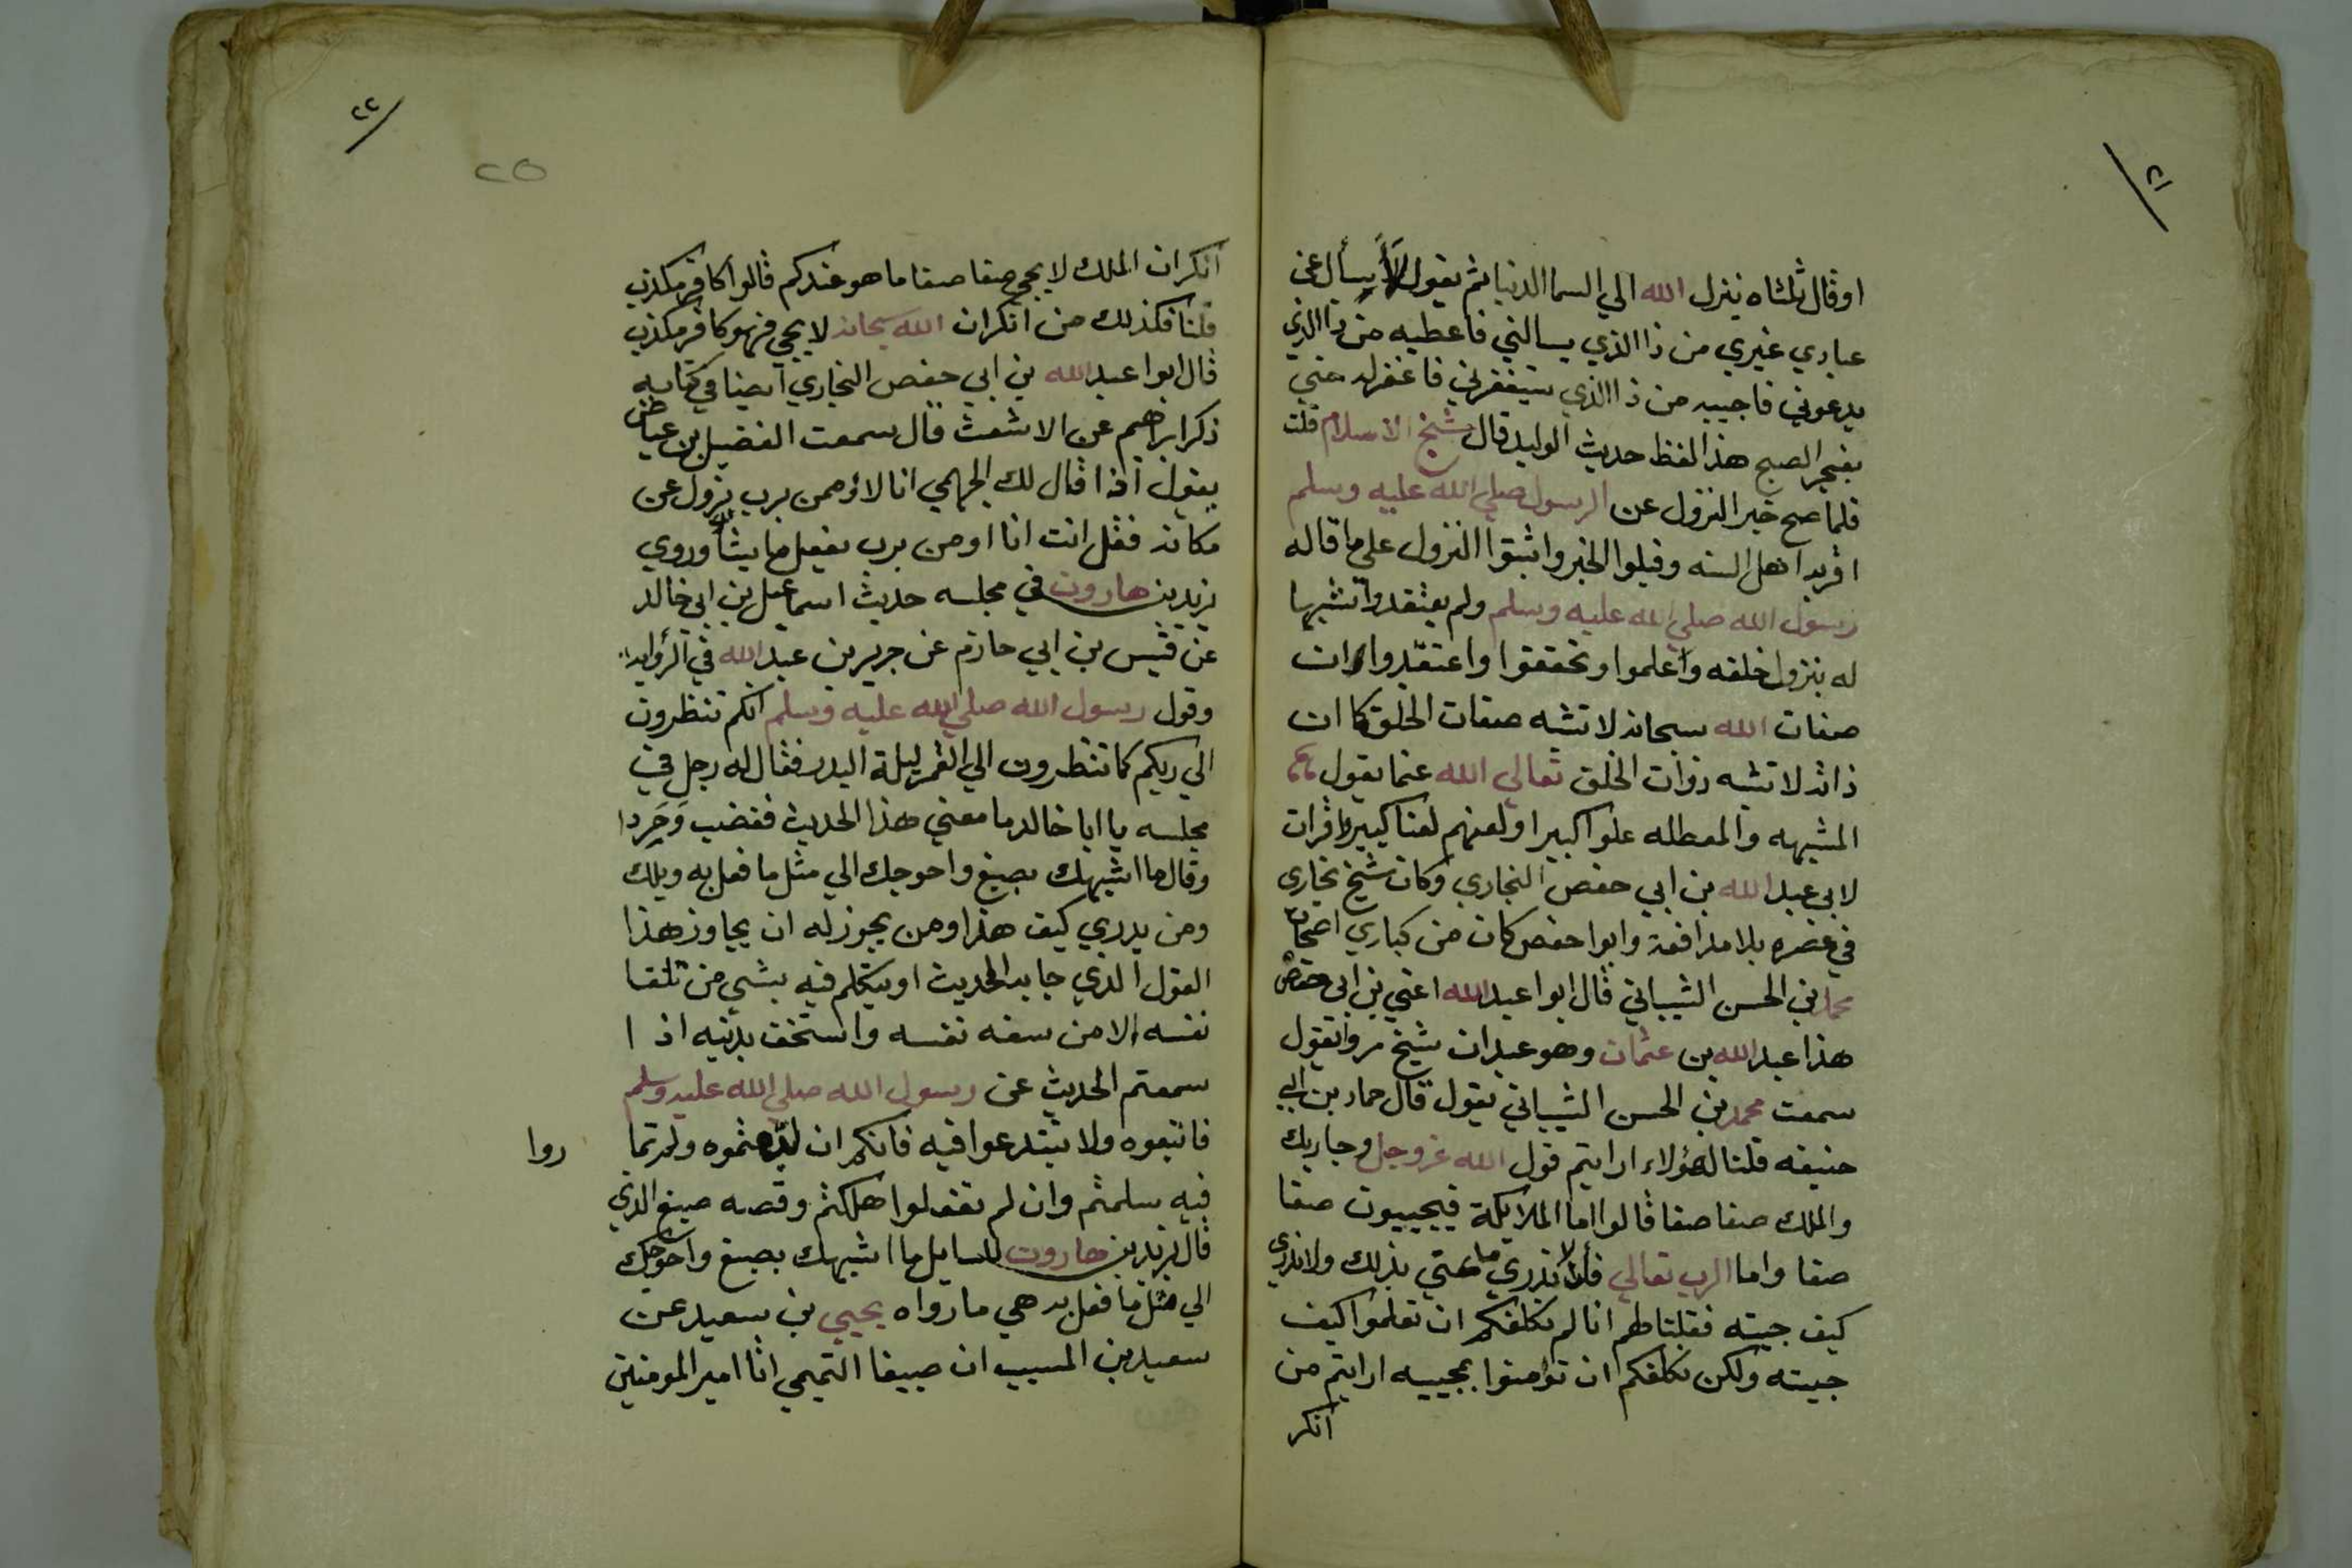 ٢١
اوقال ثلثاه ينزل الله الي السما الدنيا ثم يقول لا يسأل عن
عبادي غيري من ذا الذي يسالني فاعطيه من ذا الذي
يدعوني فاجيبه من ذا الذي يستغفرني فاغفرله حتي
يفجر الصبح هذالفظ حديث الوليد قال شيخ الاسلام قلت
فلما صح خبر النزول عن الرسول صلي الله عليه وسلم
اقربه اهل السنه وقبلوا الخبر واثبتوا النزول علي ما قاله
رسول الله صلي الله عليه وسلم ولم يعتقدوا تشبيها
له بنزول خلقه واعلموا وتحققوا واعتقدوا ان
صفات الله سبحانه لا تشبه صفات الخلق كما ان
ذاته لا تشبه ذوات الخلق تعالي الله عنما يقول
المشبهه والمعطله علوا كبيرا ولعنهم لعنا كبيرا وقرات
لابي عبدالله بن ابي حفص البخاري وكان شيخ بخاري
في عصره بلا مدافعة وابوا حفص كان من كباري اصحاب
محمد بن الحسن الشيباني قال ابوا عبدالله اعني بن ابي حفص
هذا عبدالله بن عثمان وهو عبدان شيخ مروا يقول
سمعت محمد بن الحسن الشيباني يقول قال حماد بن ابي
حنيفه قلنا لهؤلاء ارايتم قول الله عز وجل وجا ربك
والملك صفا صفا قالوا اما الملايكة فيجييون صفا
صفا واما الرب تعالي فلا ندري ما عني بذلك ولا ندري
كيف جيته فقلنا لهم انا لم نكلفكم ان تعلموا كيف
جيته ولكن نكلفكم ان تؤمنوا بمجييه ارايتم من
انكر
٢٢
٢٥
انكر ان الملك لا يجي صفا صفا ما هو عندكم قالوا كافر مكذب
قلنا فكذلك من انكر ان الله سبحانه لا يجي فهو كافر مكذب
قال ابوا عبدالله بن ابي حفص البخاري ايضا في كتابه
ذكر ابراهيم عن الاشعث قال سمعت الفضيل بن عياض
يقول اذا قال لك الجهمي انا لا اومن برب يزول عن
مكانه فقل انت انا اومن برب يفعل ما يشا وروي
يزيد بن هارون في مجلسه حديث اسماعيل بن ابي خالد
عن قيس بن ابي حازم عن جرير بن عبدالله في الرؤايه
وقول رسول الله صلي الله عليه وسلم انكم تنظرون
الي ربكم كما تنظرون الي القمر ليلة البدر فقال له رجل في
مجلسه يا ابا خالد ما معني هذا الحديث فغضب وحرد
وقال ما اشبهك بصبغ واحوجك الي مثل ما فعل به ويلك
ومن يدري كيف هذا ومن يجوز له ان يجاوز هذا
القول الذي جا به الحديث او يتكلم فيه بشي من تلقا
نفسه الا من سفه نفسه واستخف بدينه اذا
سمعتم الحديث عن رسول الله صلي الله عليه وسلم
فاتبعوه ولا تبتدعوا فيه فانكم ان اتبعتموه ولم تما
روا
فيه سلمتم وان لم تفعلوا هلكتم وقصه صبيغ الذي
قال يزيد بن هارون للسايل ما اشبهك بصبغ واحوجك
الي مثل ما فعل به هي ما رواه يحيي بن سعيد عن
سعيد بن المسيب ان صبيغا التميمي اتا امير المومنين